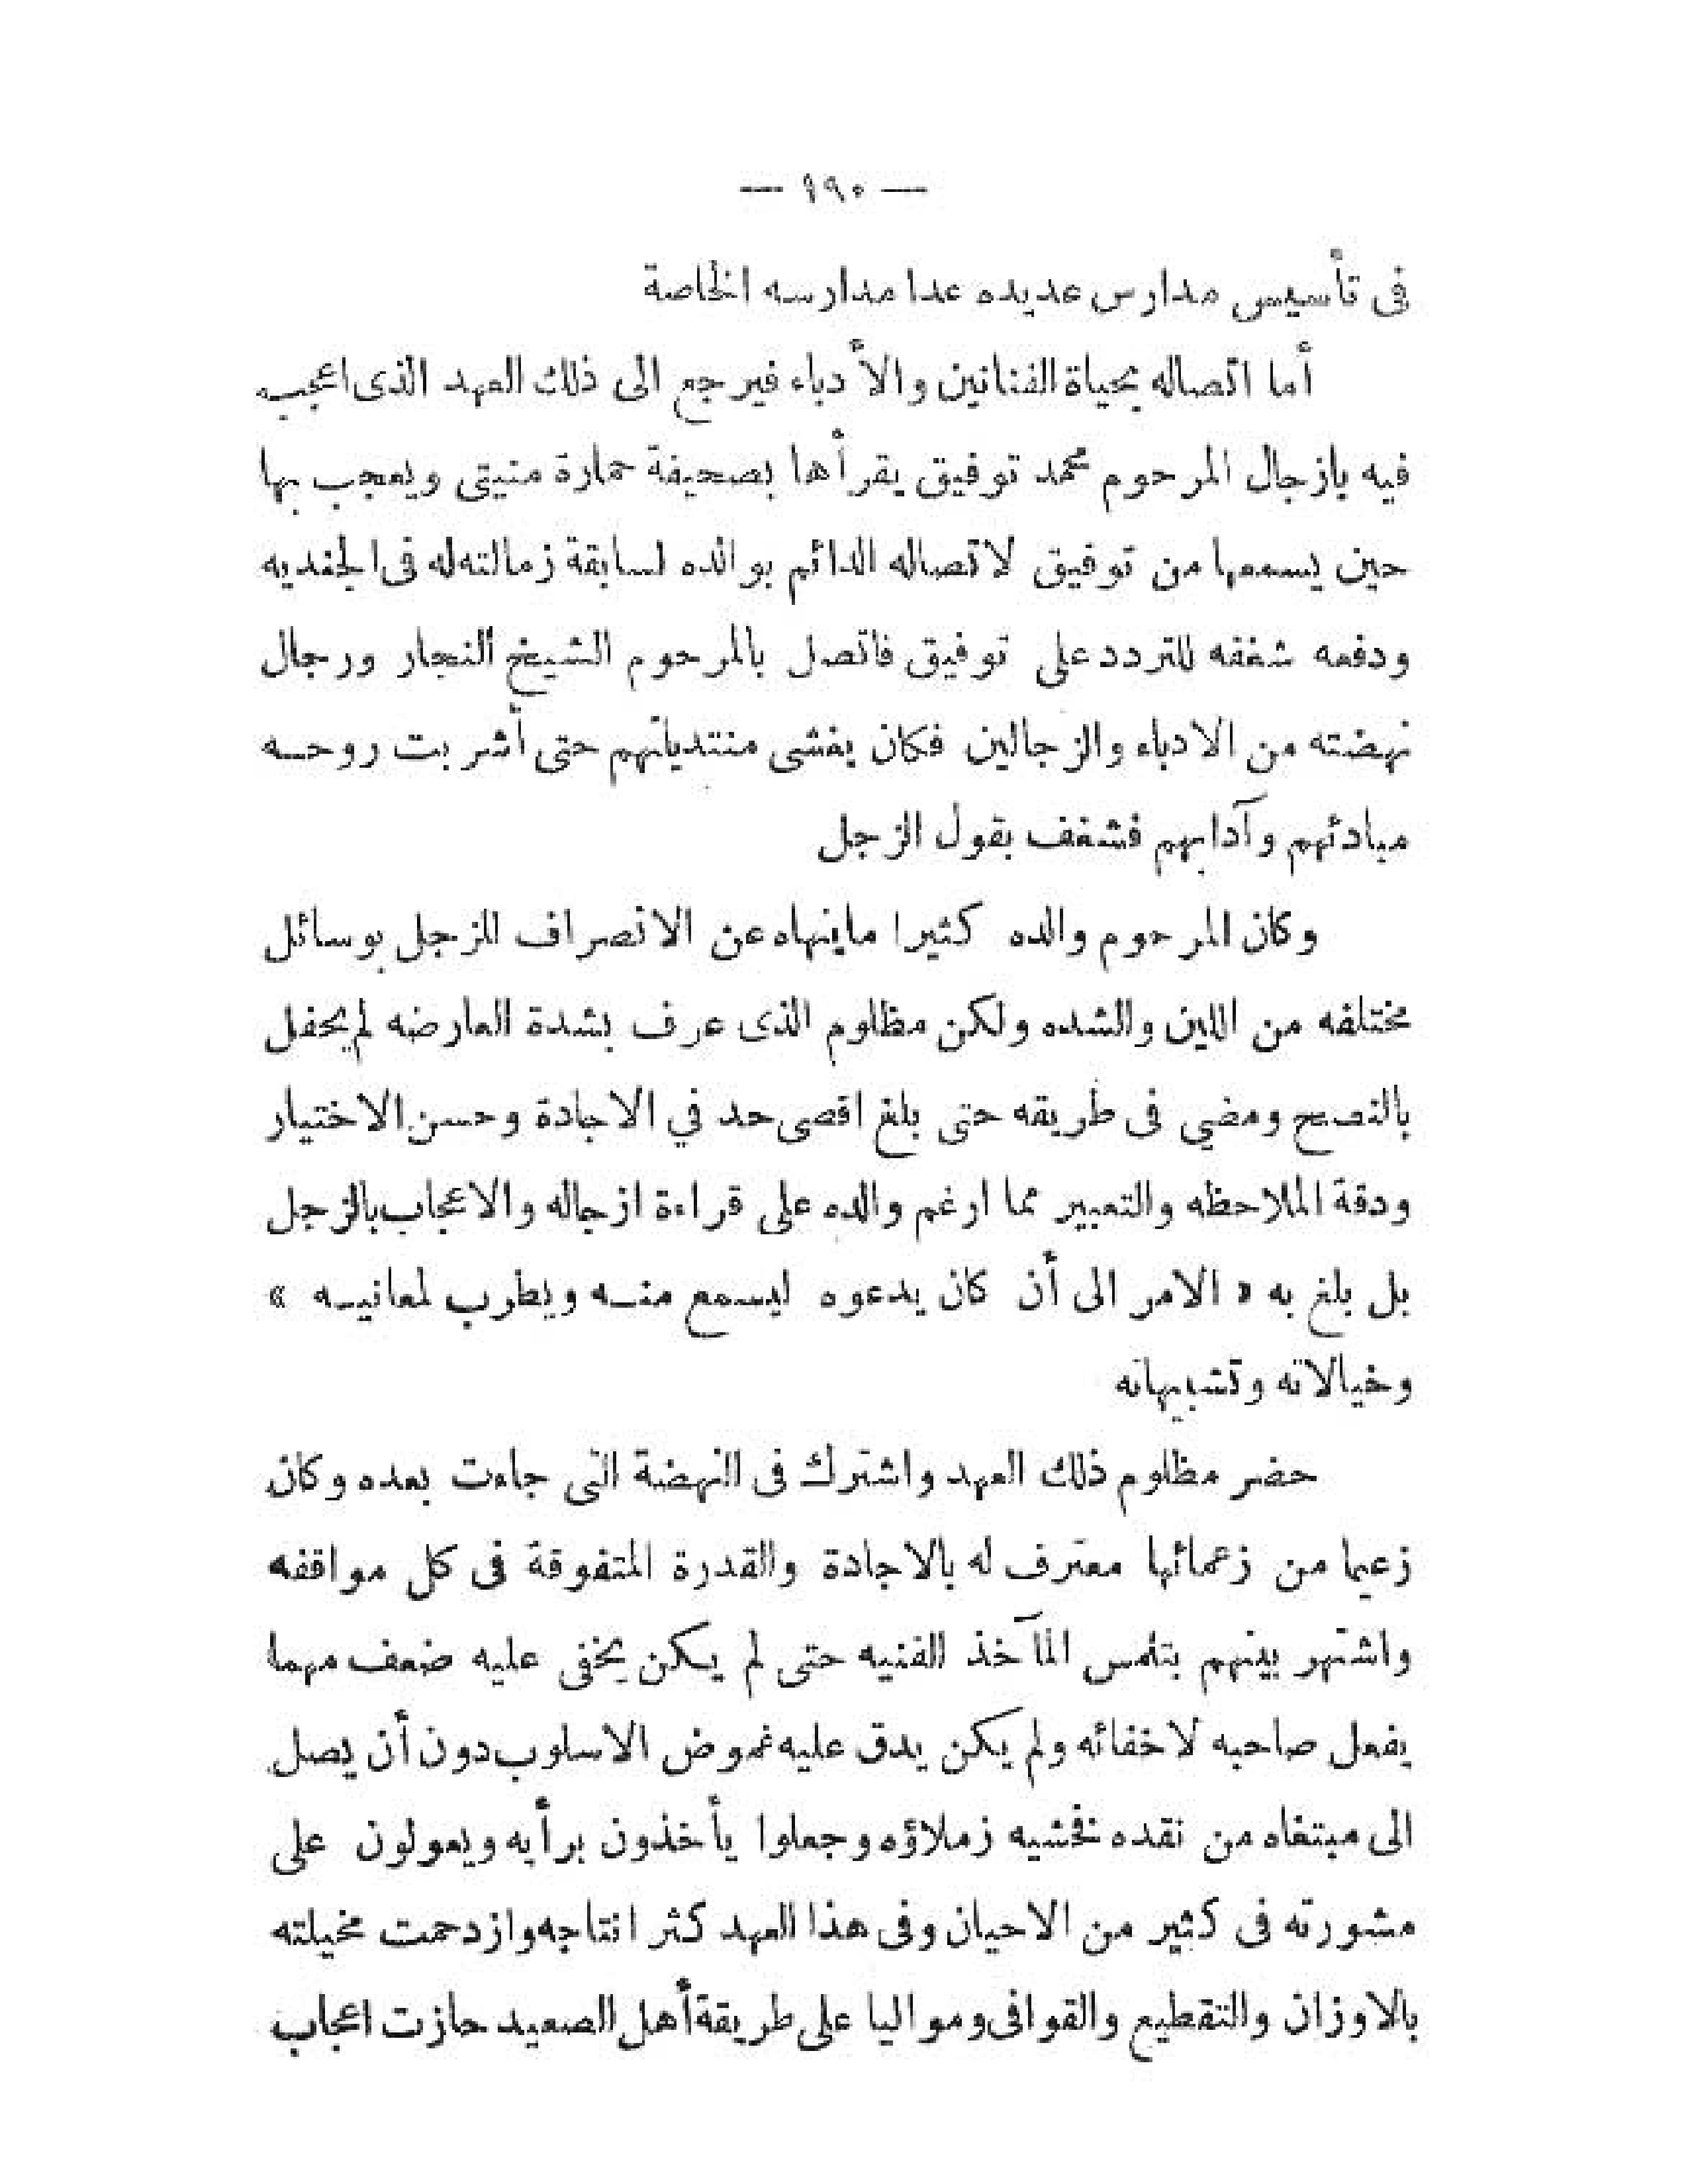 — ١٩٥ —
فى تأسيس مدارس عديده عدا مدارسه الخاصة
أما اتصاله بحياة الفنانين والأدباء فيرجع الى ذلك العهد الذى اعجب
فيه بازجال المرحوم محمد توفيق يقرأها بصحيفة حمارة منيتى ويعجب بها
حين يسمعها من توفيق لاتصاله الدائم بوالده لسابقة زمالته له فى الجنديه
ودفعه شغفه للتردد على توفيق فاتصل بالمرحوم الشيخ النجار ورجال
نهضته من الادباء والزجالين فكان يغشى منتدياتهم حتى أشربت روحه
مبادئهم وآدابهم فشغف بقول الزجل
وكان المرحوم والده كثيرا ماينهاه عن الانصراف للزجل بوسائل
مختلفه من اللين والشده ولكن مظلوم الذى عرف بشدة العارضه لم يحفل
بالنصح ومضي فى طريقه حتى بلغ اقصى حد في الاجادة وحسن الاختيار
ودقة الملاحظه والتعبير مما ارغم والده على قراءة ازجاله والاعجاب بالزجل
بل بلغ به « الامر الى أن كان يدعوه ليسمع منه ويطرب لمعانيه »
وخيالاته وتشبيهاته
حضر مظلوم ذلك العهد واشترك فى النهضة التى جاءت بعده وكان
زعيما من زعمائها معترف له بالاجادة والقدرة المتفوقة فى كل مواقفه
واشتهر بينهم بتلمس المآخذ الفنيه حتى لم يكن يخفى عليه ضعف مهما
يفعل صاحبه لاخفائه ولم يكن يدق عليه غموض الاسلوب دون أن يصل
الى مبتغاه من نقده فخشيه زملاؤه وجعلوا يأخذون برأيه ويعولون على
مشورته فى كثير من الاحيان وفى هذا العهد كثر انتاجه وازدحمت مخيلته
بالاوزان والتقطيع والقوافى ومواليا على طريقة أهل الصعيد حازت اعجاب